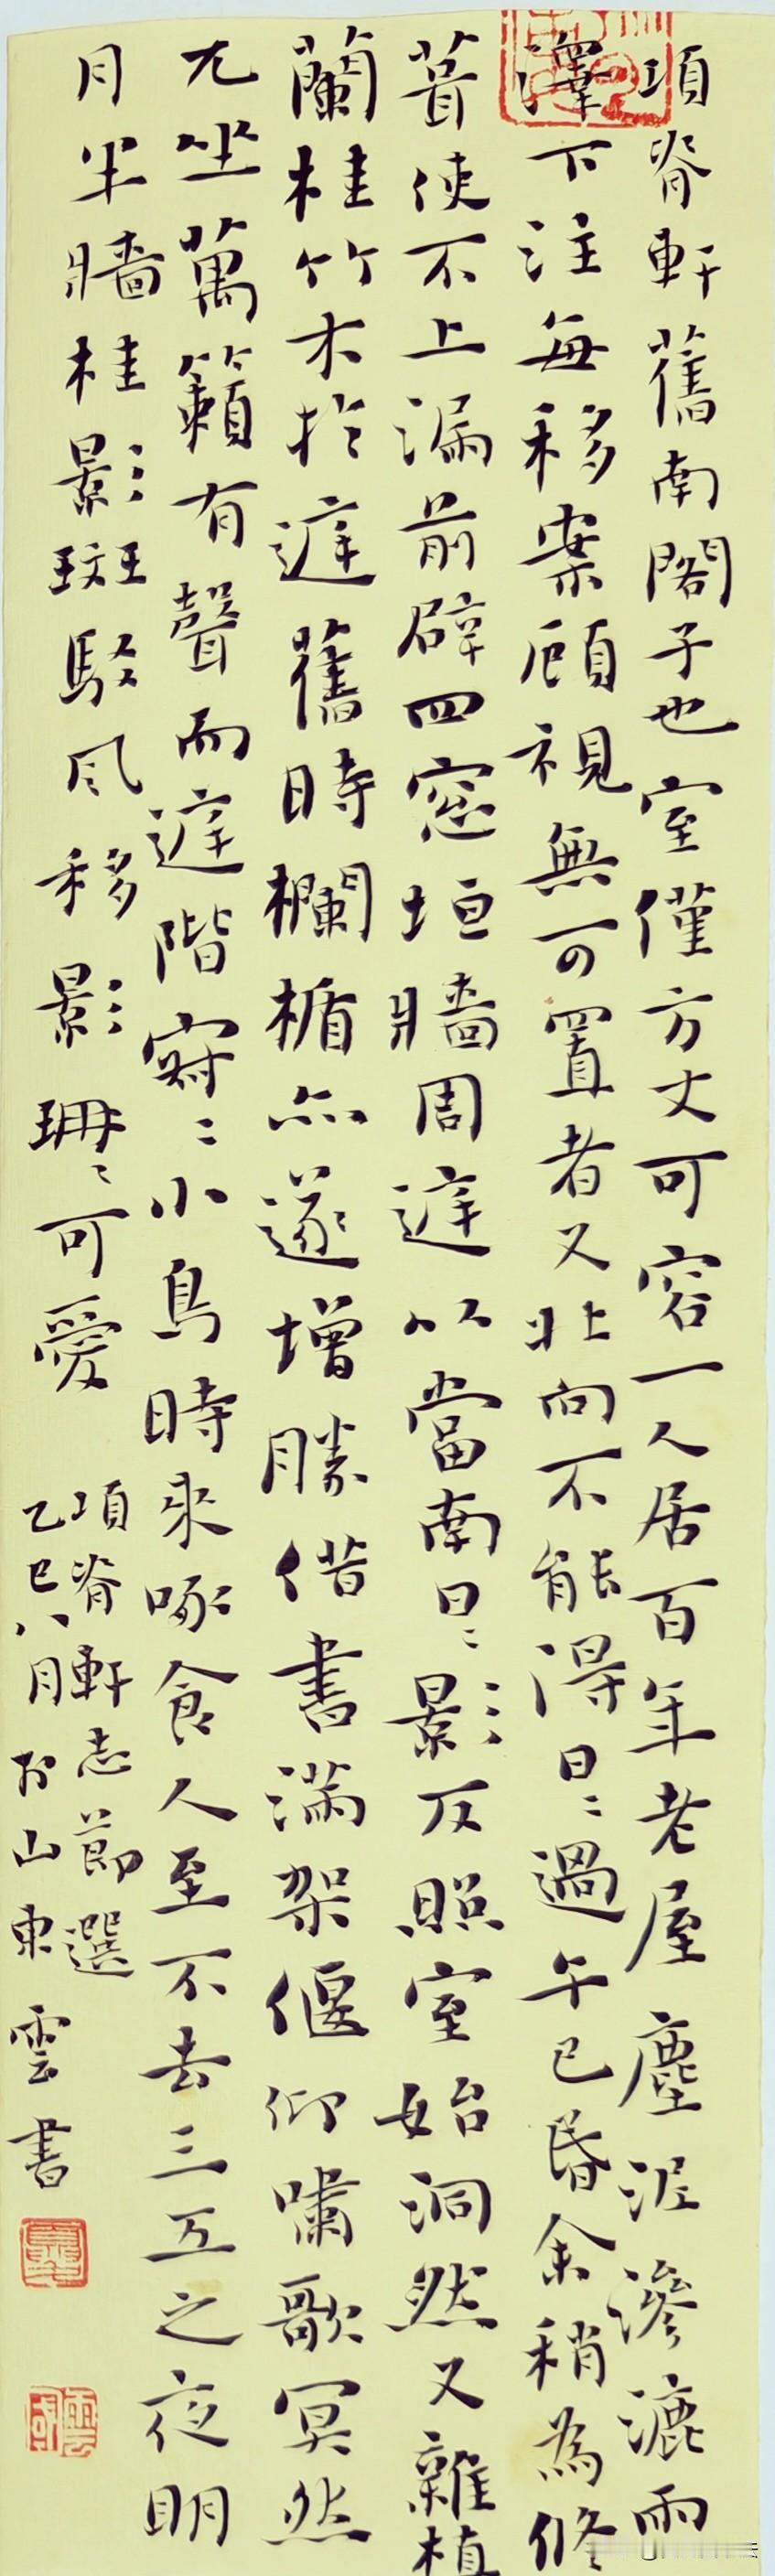 項脊軒舊南閣子也室僅方丈可容一人居百年老屋塵泥滲漉雨
澤下注每移案顧視無可置者又北向不能得日〻過午已昏余稍為修
葺使不上漏前辟四窓垣牆周遅以當南日〻影反照室始洞然又雜植
蘭桂竹木於遅舊時欄楯亦遂增勝借書滿架偃仰嘯歌冥然
兀坐萬籟有聲而遅階寂〻小鳥時來啄食人至不去三五之夜明
月半牆桂影斑駁風移影珊〻可愛
項脊軒志節選
乙巳八月於山東雲書